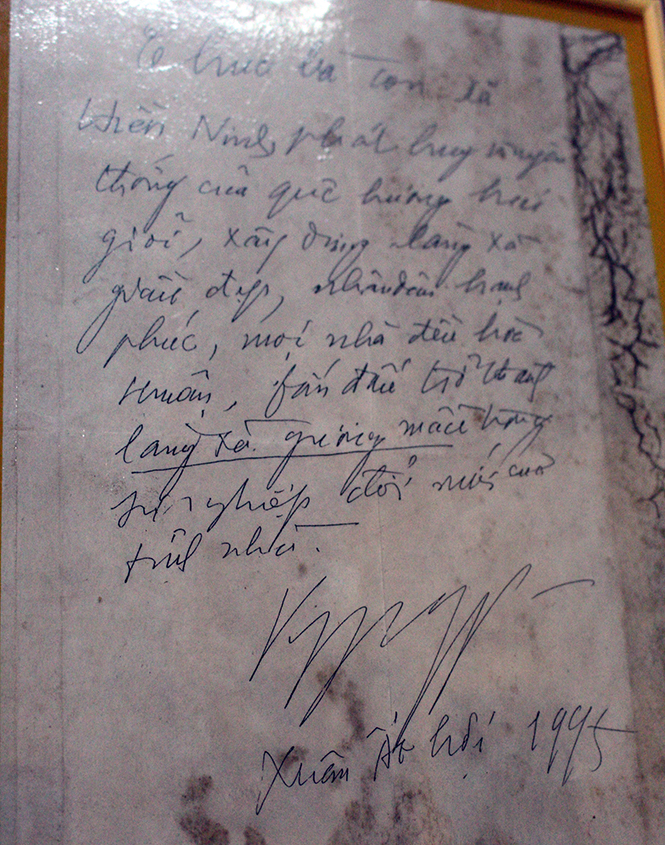 chúc bà con xã
Hiền Ninh, phát huy truyền
thống của quê hương
giỏi, xây dựng làng xã
giàu đẹp, nhân dân hạnh
phúc, mọi nhà đều hòa
thuận, fấn đấu trở thành
làng xã gương mẫu trong
sự nghiệp đổi mới của
tỉnh nhà.
Xuân Ất hợi 1995